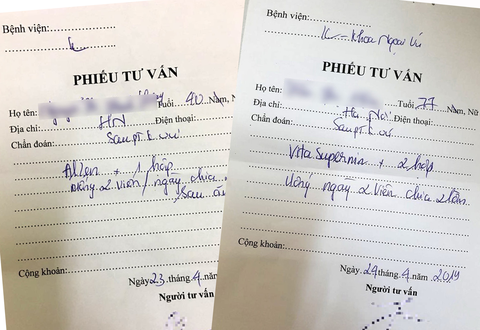 Bệnh viện:
K
PHIẾU TƯ VẤN
Họ tên: Tuổi 40 Năm, Nữ
Địa chỉ: HN Điện thoại:
Chẩn đoán: Sau PT K vú
+ 1 hộp
Uống 2 viên/ngày chia
Sau ăn
Cộng khoản:
Ngày 23 tháng 4 năm
Người tư vấn
Bệnh viện:
K - Khoa Ngoại Vú
PHIẾU TƯ VẤN
Họ tên: Tuổi 77 Năm, Nữ
Địa chỉ: Hà Nội Điện thoại:
Chẩn đoán: Sau PT K vú
+ 2 hộp
Uống ngày 2 viên chia 2 lần
Cộng khoản:
Ngày 24 tháng 4 năm 2019
Người tư vấn